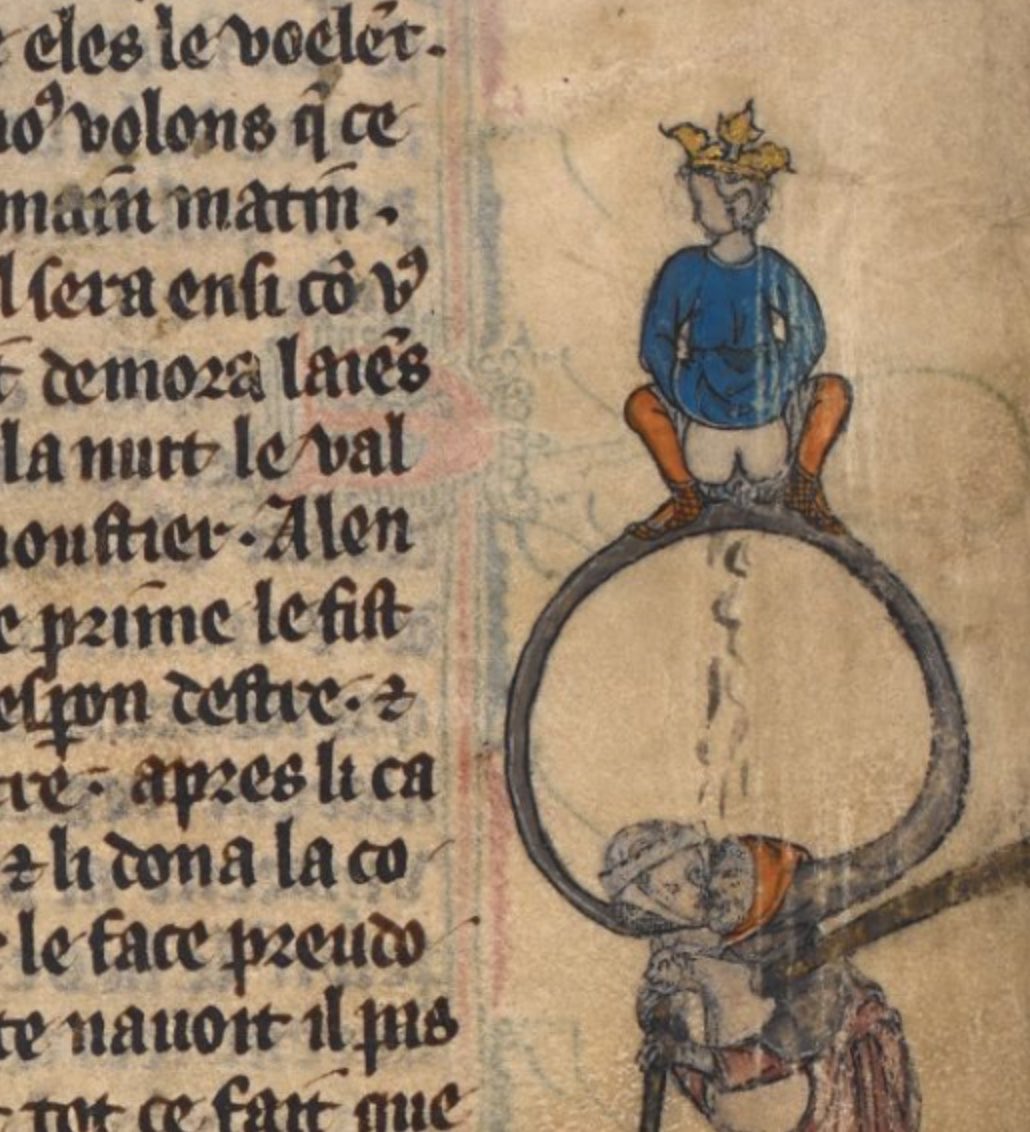 eles le voelēt.
no⁹ volons q̄ ce
main matin.
l sera ensi cō v⁹
t demora laiēs
la nuit le val
moustier. Alen
e prime le fist
espon destre. ⁊
tre. apres li ca
⁊ li dona la co
le face preudo
te nauoit il pas
tot ce fait que